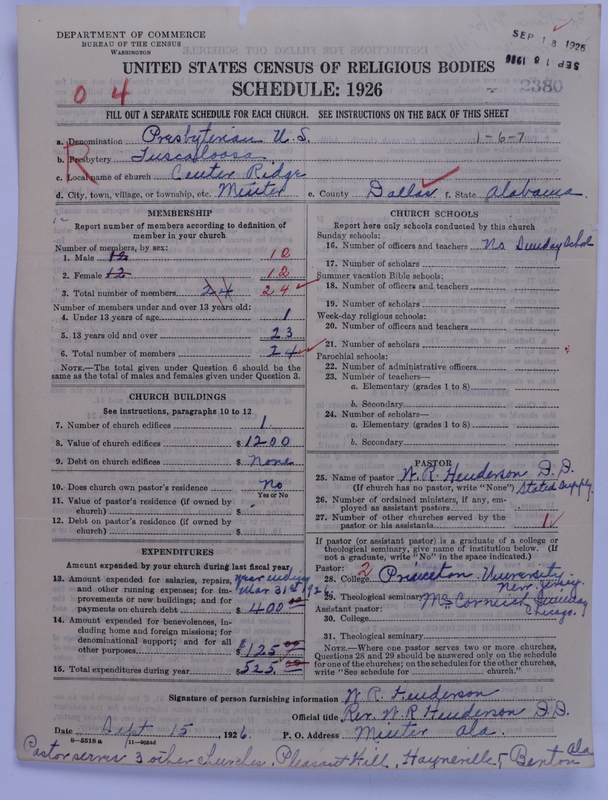 DEPARTMENT OF COMMERCE
BUREAU OF THE CENSUS
WASHINGTON
SEP 18 1926
SEP 18 1926
UNITED STATES CENSUS OF RELIGIOUS BODIES
SCHEDULE: 1926
0 4
2380
FILL OUT A SEPARATE SCHEDULE FOR EACH CHURCH. SEE INSTRUCTIONS ON THE BACK OF THIS SHEET
a. Denomination Presbyterian U.S. 1-6-7
b. Presbytery Tuscaloosa
c. Local name of church Center Ridge
d. City, town, village, or township, etc. Minter e. County Dallas f. State Alabama
R
MEMBERSHIP
Report number of members according to definition of
member in your church
Number of members, by sex:
1. Male 12 12
2. Female 12 12
3. Total number of members 24 24
Number of members under and over 13 years old:
4. Under 13 years of age 1
5. 13 years old and over 23
6. Total number of members 24
NOTE.—The total given under Question 6 should be the
same as the total of males and females given under Question 3.
CHURCH BUILDINGS
See instructions, paragraphs 10 to 12
7. Number of church edifices 1
8. Value of church edifices $1200
9. Debt on church edifices $ None
10. Does church own pastor's residence? No
Yes or No
11. Value of pastor's residence (if owned by
church) $
12. Debt on pastor's residence (if owned by
church) $
EXPENDITURES
Amount expended by your church during last fiscal year
year ending
Mar 31st 1926
13. Amount expended for salaries, repairs,
and other running expenses; for im-
provements or new buildings; and for
payments on church debt $400.00
14. Amount expended for benevolences, in-
cluding home and foreign missions; for
denominational support; and for all
other purposes $125.00
15. Total expenditures during year $525.00
CHURCH SCHOOLS
Report here only schools conducted by this church
Sunday schools:
16. Number of officers and teachers No Sunday School
17. Number of scholars
Summer vacation Bible schools:
18. Number of officers and teachers
19. Number of scholars
Week-day religious schools:
20. Number of officers and teachers
21. Number of scholars
Parochial schools:
22. Number of administrative officers
23. Number of teachers—
a. Elementary (grades 1 to 8)
b. Secondary
24. Number of scholars—
a. Elementary (grades 1 to 8)
b. Secondary
PASTOR
25. Name of pastor W. R. Henderson D.D.
(If church has no pastor, write "None") Stated Supply.
26. Number of ordained ministers, if any, em-
ployed as assistant pastors
27. Number of other churches served by the
pastor or his assistants 1
If pastor (or assistant pastor) is a graduate of a college or
theological seminary, give name of institution below. (If
not a graduate, write "No" in the space indicated.)
Pastor: 2
28. College Princeton University
New Jersey.
29. Theological seminary McCormick Seminary
Chicago.
Assistant pastor:
30. College
31. Theological seminary
NOTE.—Where one pastor serves two or more churches,
Questions 28 and 29 should be answered only on the schedule
for one of the churches; on the schedules for the other churches,
write "See schedule for church."
Signature of person furnishing information W. R. Henderson
Official title Rev. W. R. Henderson D.D.
Date Sept 15, 1926. P. O. Address Minter Ala.
8-5518 a 11-9034d
Pastor serves 3 other churches. Pleasant Hill, Hayneville, Benton Ala